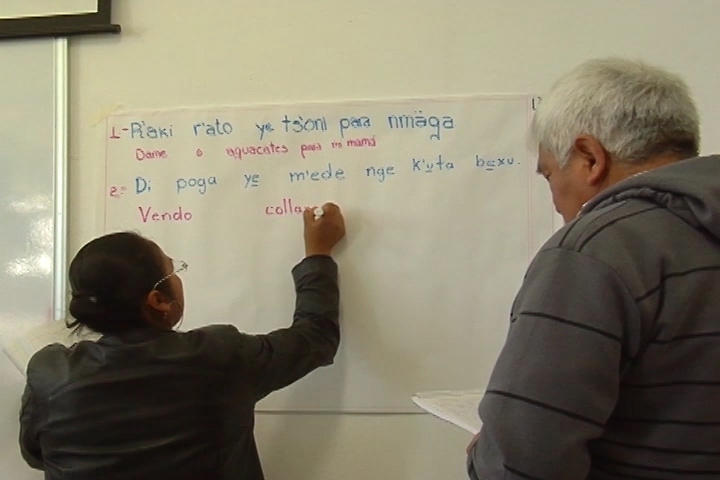 1.- R'aki r'ato ye ts'oni para nmäga
Dame 6 aguacates para mi mamá
2.- Di poga y<u>e</u> m'ede nge k'<u>u</u>ta b<u>e</u>xu.
Vendo colla